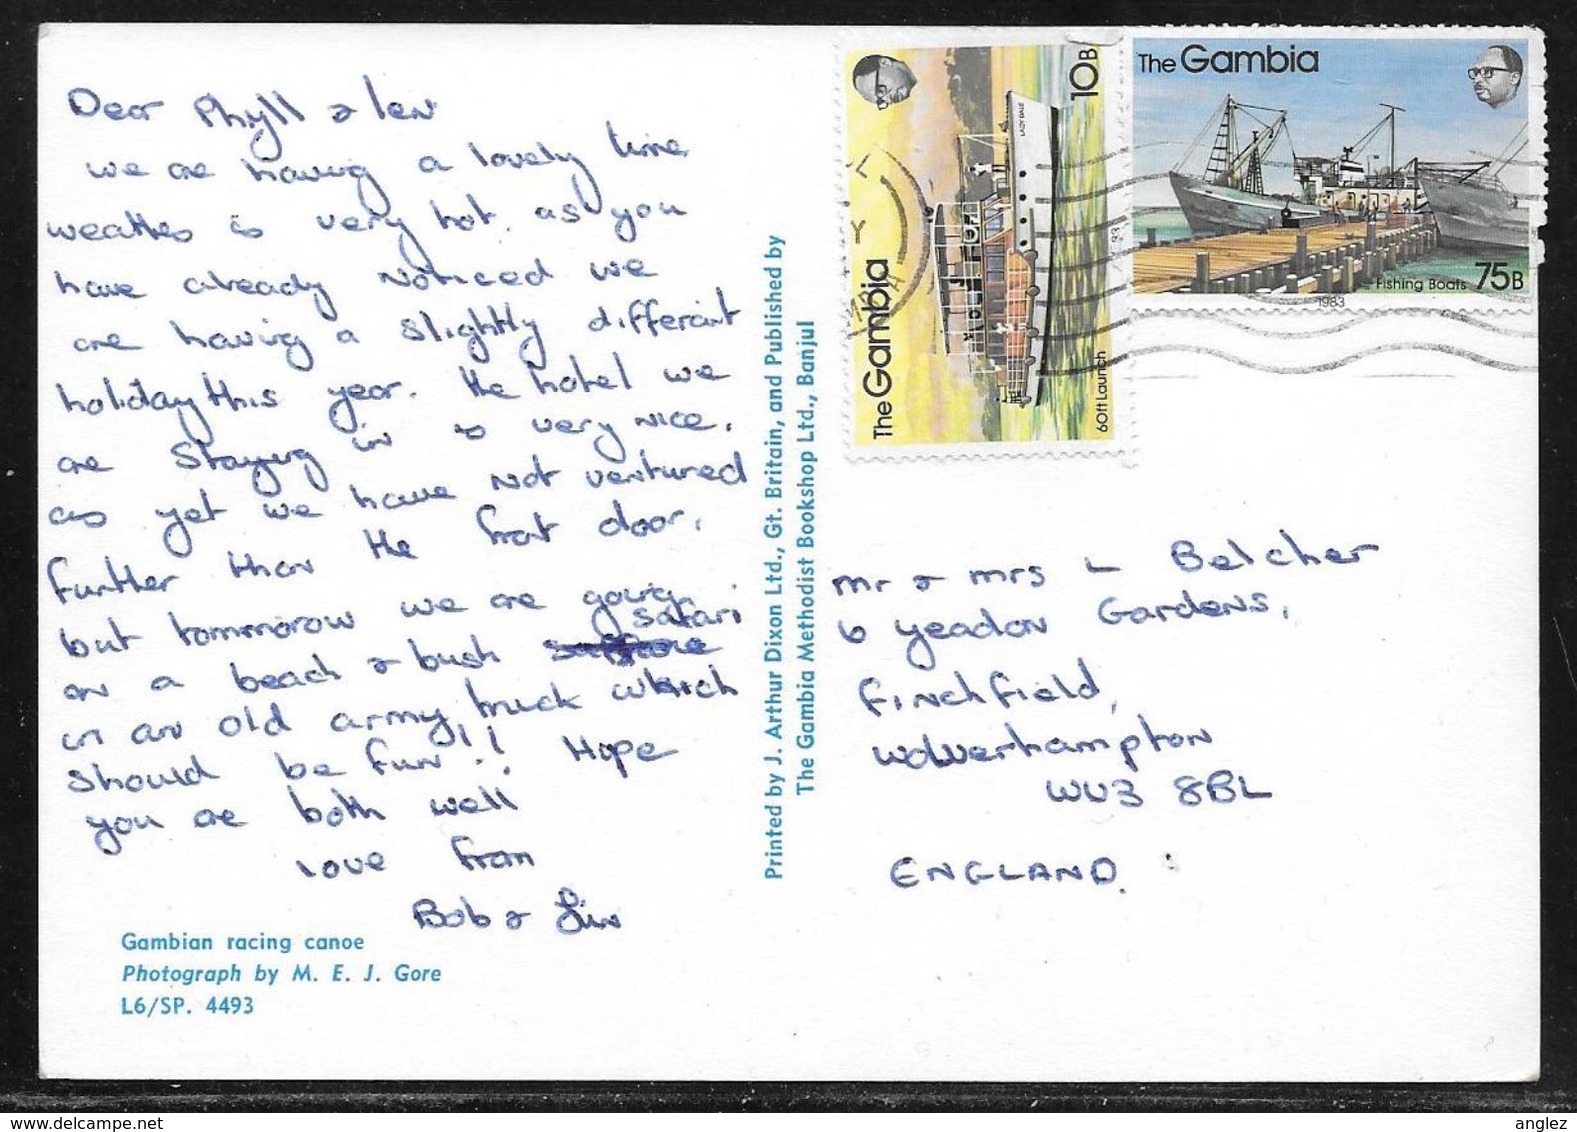 Dear Phyll & Len
we are having a lovely time
weather is very hot. as you
have already noticed we
are having a slightly different
holiday this year. the hotel we
are staying in is very nice.
as yet we have not ventured
further than the front door.
but tommorow we are going
on a beach & bush safari
in an old army truck which
should be fun!! Hope
you are both well
love from
Bob & Lin
Gambian racing canoe
Photograph by M. E. J. Gore
L6/SP. 4493
Printed by J. Arthur Dixon Ltd., Gt. Britain, and Published by
The Gambia Methodist Bookshop Ltd., Banjul
The Gambia
10B
LADY DALE
60ft Launch
The Gambia
Fishing Boats 75B
1983
Mr & Mrs L Belcher
6 Yeadon Gardens,
Finchfield,
Wolverhampton
WV3 8BL
ENGLAND.
anglez